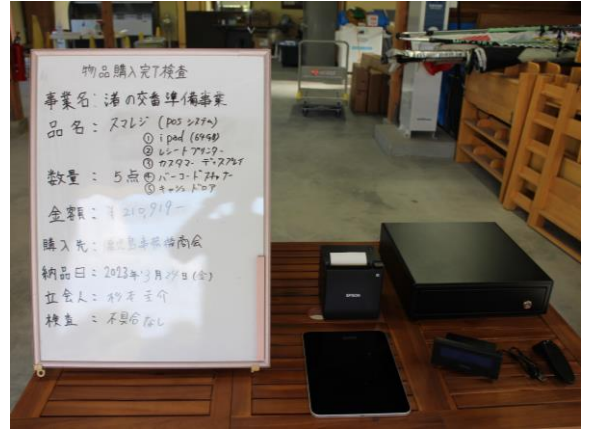 物品購入完了検査
事業名:渚の交番準備事業
品名:スマレジ(POSシステム)
① ipad (64GB)
② レシートプリンター
③ カスタマーディスプレイ
数量:5点 ④ バーコードスキャナー
⑤ キャッシュドロア
金額:¥210,919-
購入先:事務備商会
納品日:2023年3月24日(金)
立会人:
検査:不具合なし
EPSON